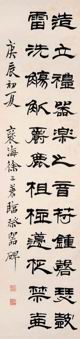 造立禮器樂之音符鍾磬瑟鼓
雷洗觴觚爵鹿柤梪籩柉禁壺
庚辰初夏 海徐臨禮器碑